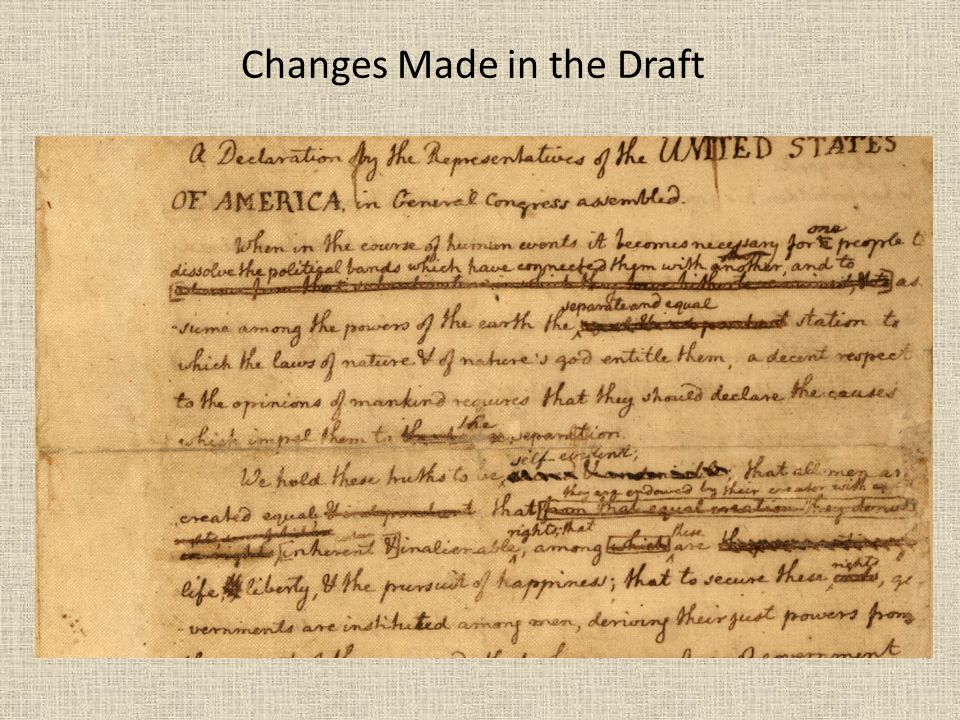 Changes Made in the Draft
A Declaration by the Representatives of the UNITED STATES
OF AMERICA, in General Congress assembled.
one
When in the course of human events it becomes necessary for people to
dissolve the political bands which have connected them with another, and to
as
separate and equal
-sume among the powers of the earth the station to
which the laws of nature & of nature's god entitle them, a decent respect
to the opinions of mankind requires that they should declare the causes
the
which impel them to separation.
self-evident;
We hold these truths to be that all men are
they are endowed by their creator with
created equal & independent that from that equal creation they derive
rights; that
these
in rights inherent & inalienable, among which are
rights
life, & liberty, & the pursuit of happiness; that to secure these ends, go
-vernments are instituted among men, deriving their just powers from
government